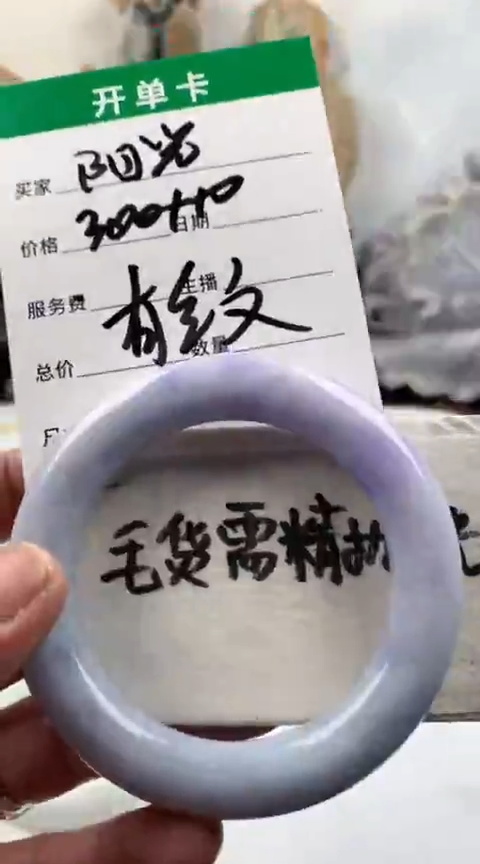 开单卡
买家 阳光
价格 300+10 日期
服务费 主播
有纹
总价 数量
毛货需精抛